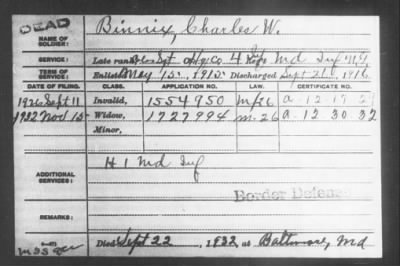 DEAD
NAME OF SOLDIER: Binnix, Charles W.
SERVICE: Late rank, Sgt Hq Co 4 Md Inf
TERM OF SERVICE: Enlisted May 15, 1915 Discharged Sept 21, 1916
DATE OF FILING. CLASS. APPLICATION NO. LAW. CERTIFICATE NO.
1926 Sept 11 Invalid, 1554950 a 12 17 21
1932 Nov 15 Widow, 1727994 M-26 a 12 30 32
Minor,
ADDITIONAL SERVICES: H 1 Md Inf
Border Defense
REMARKS:
Died Sept 22, 1932 at Baltimore, Md